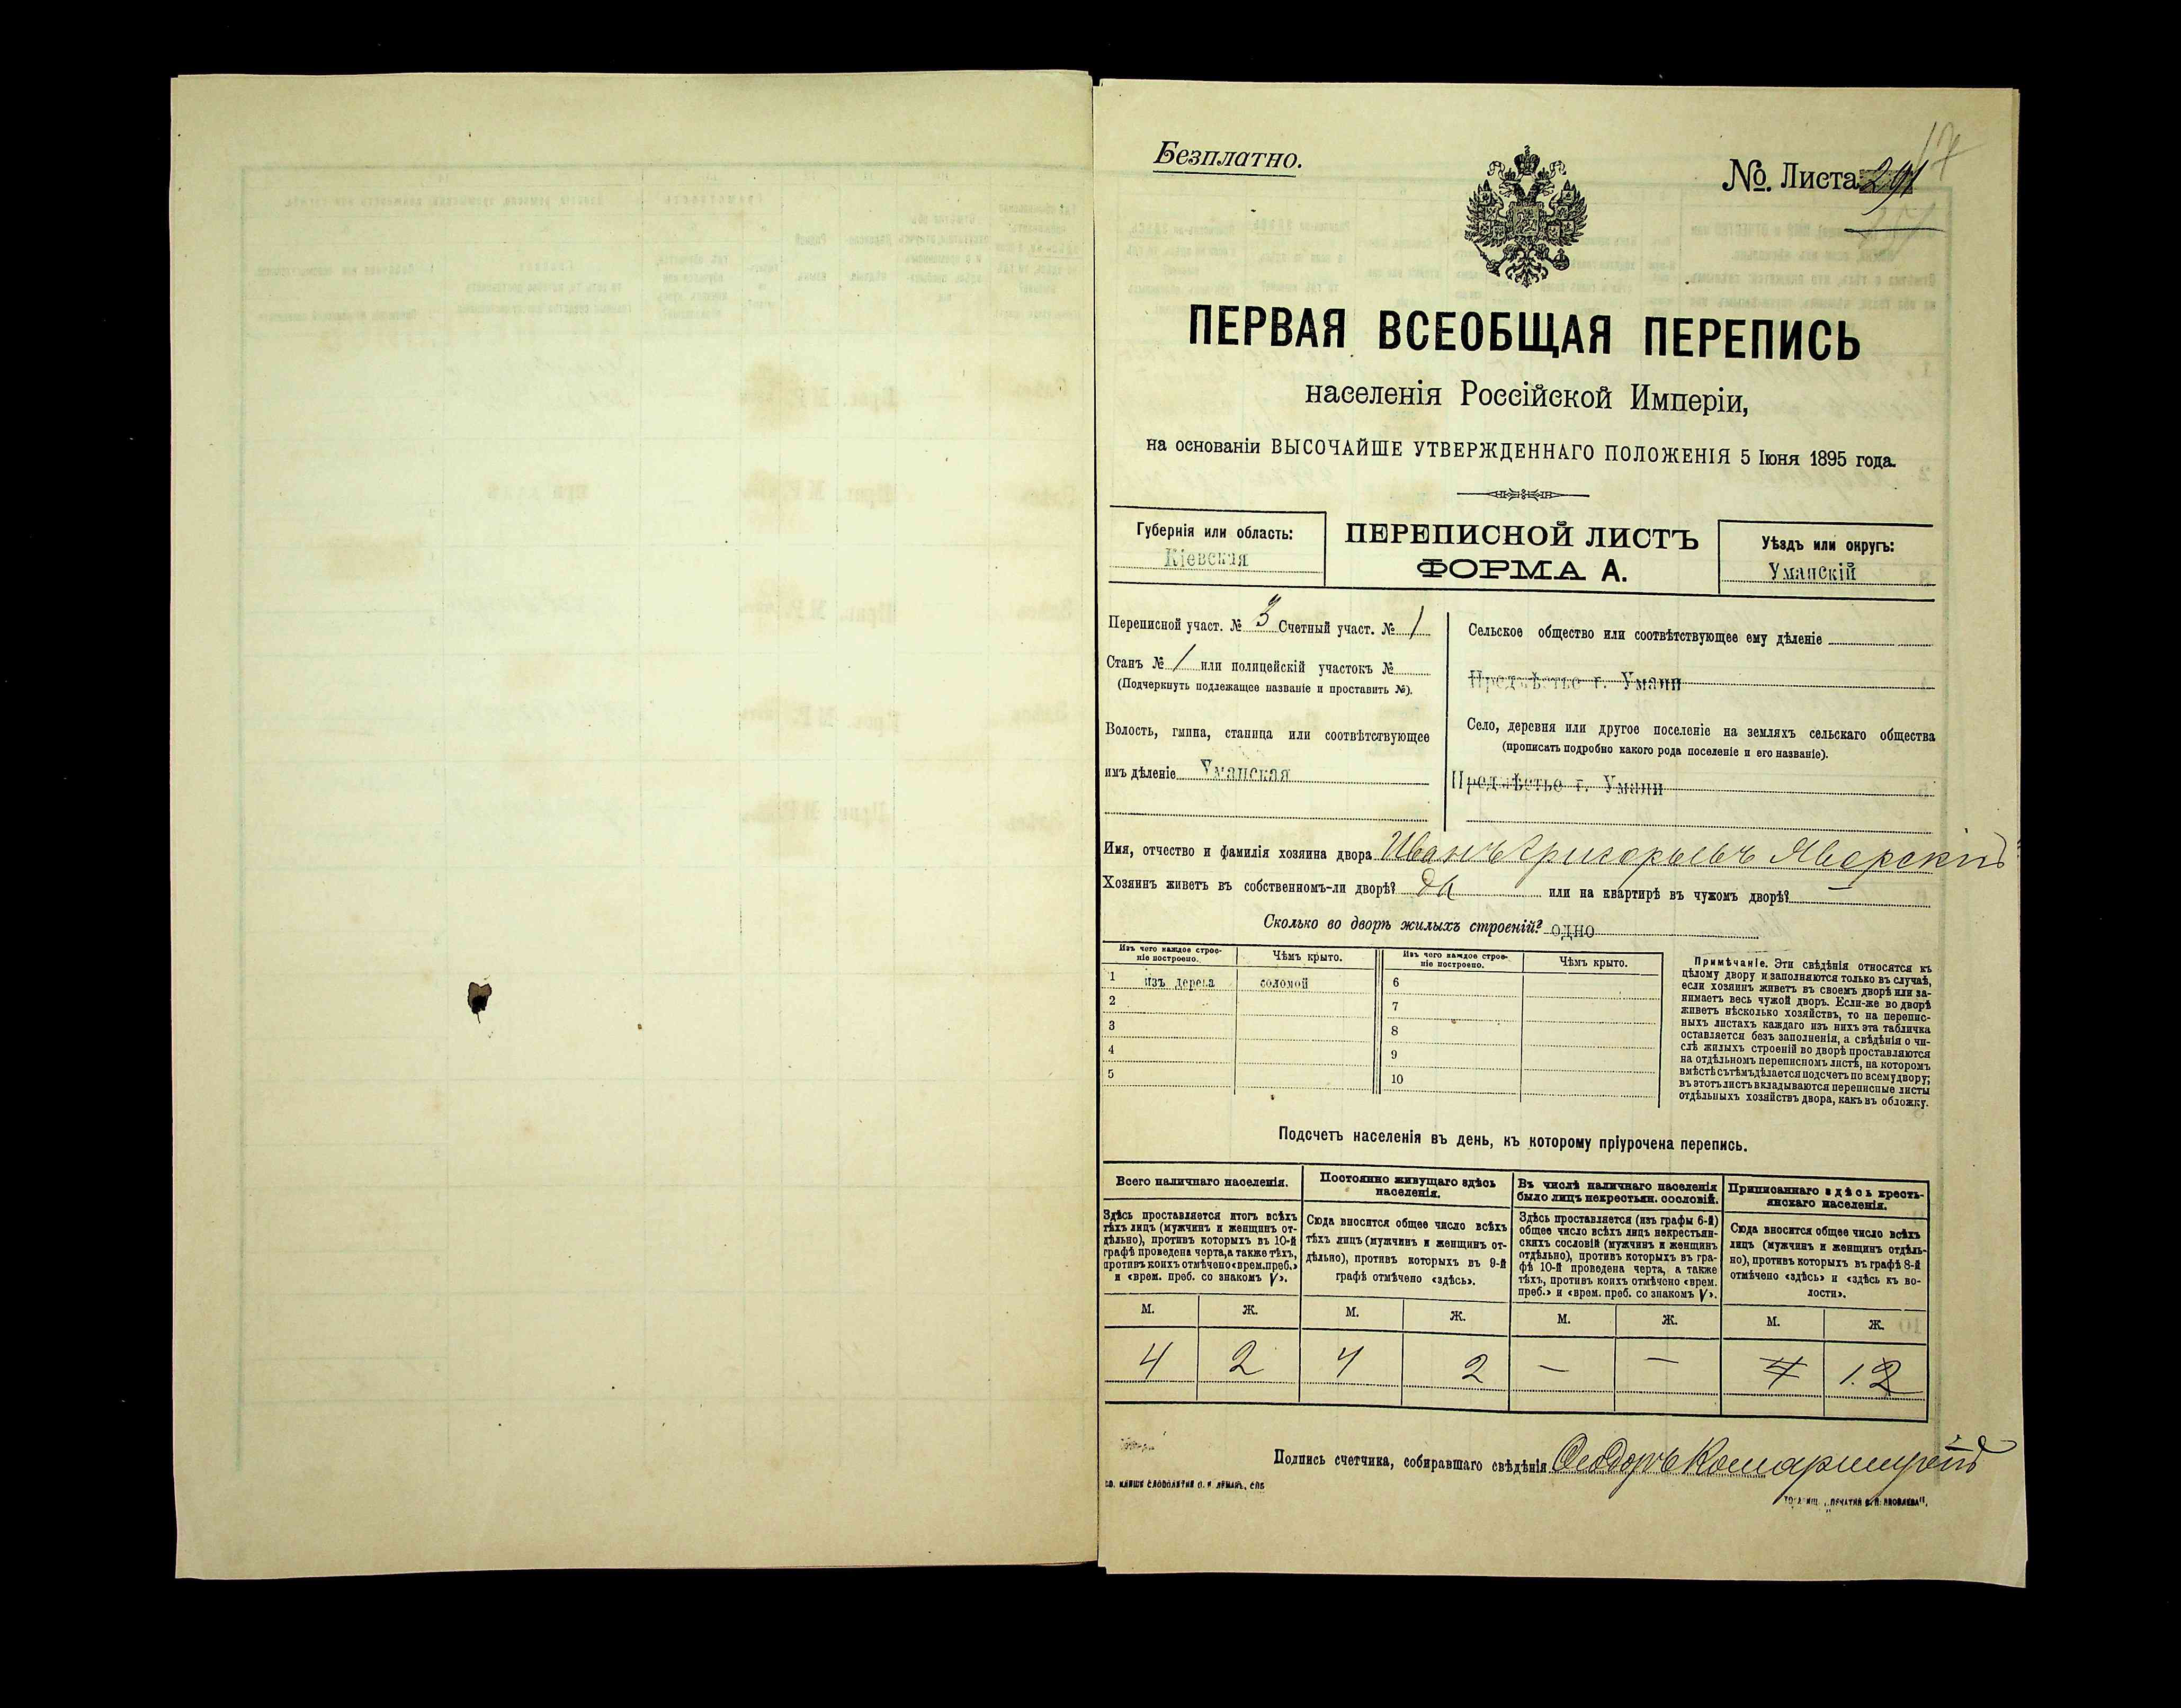 Безплатно.
№. Листа 291
17
ПЕРВАЯ ВСЕОБЩАЯ ПЕРЕПИСЬ
населенія Россійской Имперіи,
на основаніи ВЫСОЧАЙШЕ УТВЕРЖДЕННАГО ПОЛОЖЕНІЯ 5 Іюня 1895 года.
Губернія или область:
Кіевская
ПЕРЕПИСНОЙ ЛИСТЪ
ФОРМА А.
Уѣздъ или округъ:
Уманскій
Переписной участ. № 3 Счетный участ. № 1
Станъ № 1 или полицейскій участокъ №
(Подчеркнуть подлежащее названіе и проставить №).
Волость, гмина, станица или соотвѣтствующее
имъ дѣленіе Уманская
Сельское общество или соотвѣтствующее ему дѣленіе
Предмѣстье г. Умани
Село, деревня или другое поселеніе на земляхъ сельскаго общества
(прописать подробно какого рода поселеніе и его названіе).
Предмѣстье г. Умани
Имя, отчество и фамилія хозяина двора Иванъ Григорьевъ Яворскій
Хозяинъ живетъ въ собственномъ-ли дворѣ? да или на квартирѣ въ чужомъ дворѣ? —
Сколько во дворѣ жилыхъ строеній? одно
Изъ чего каждое строе-
ніе построено.
Чѣмъ крыто.
Изъ чего каждое строе-
ніе построено.
Чѣмъ крыто.
1 изъ дерева соломой 6
2 7
3 8
4 9
5 10
Примѣчаніе. Эти свѣдѣнія относятся къ
цѣлому двору и заполняются только въ случаѣ,
если хозяинъ живетъ въ своемъ дворѣ или за-
нимаетъ весь чужой дворъ. Если-же во дворѣ
живетъ нѣсколько хозяйствъ, то на перепис-
ныхъ листахъ каждаго изъ нихъ эта табличка
оставляется безъ заполненія, а свѣдѣнія о чи-
слѣ жилыхъ строеній во дворѣ проставляются
на отдѣльномъ переписномъ листѣ, на которомъ
вмѣстѣ съ тѣмъ дѣлается подсчетъ по всему двору;
въ этотъ листъ вкладываются переписные листы
отдѣльныхъ хозяйствъ двора, какъ въ обложку.
Подсчетъ населенія въ день, къ которому пріурочена перепись.
Всего наличнаго населенія.
Здѣсь проставляется итогъ всѣхъ
тѣхъ лицъ (мужчинъ и женщинъ от-
дѣльно), противъ которыхъ въ 10-й
графѣ проведена черта, а также тѣхъ,
противъ коихъ отмѣчено «врем. преб.»
и «врем. преб. со знакомъ V».
Постоянно живущаго здѣсь
населенія.
Сюда вносится общее число всѣхъ
тѣхъ лицъ (мужчинъ и женщинъ от-
дѣльно), противъ которыхъ въ 9-й
графѣ отмѣчено «здѣсь».
Въ числѣ наличнаго населенія
было лицъ некрестьян. сословій.
Здѣсь проставляется (изъ графы 6-й)
общее число всѣхъ лицъ некрестьян-
скихъ сословій (мужчинъ и женщинъ
отдѣльно), противъ которыхъ въ гра-
фѣ 10-й проведена черта, а также
тѣхъ, противъ коихъ отмѣчено «врем.
преб.» и «врем. преб. со знакомъ V».
Приписаннаго здѣсь кресть-
янскаго населенія.
Сюда вносится общее число всѣхъ
лицъ (мужчинъ и женщинъ отдѣль-
но), противъ которыхъ въ графѣ 8-й
отмѣчено «здѣсь» и «здѣсь къ во-
лости».
М. Ж. М. Ж. М. Ж. М. Ж.
4 2 4 2 — — 4 1.2
Подпись счетчика, собиравшаго свѣдѣнія Ѳеодоръ Комарницкій